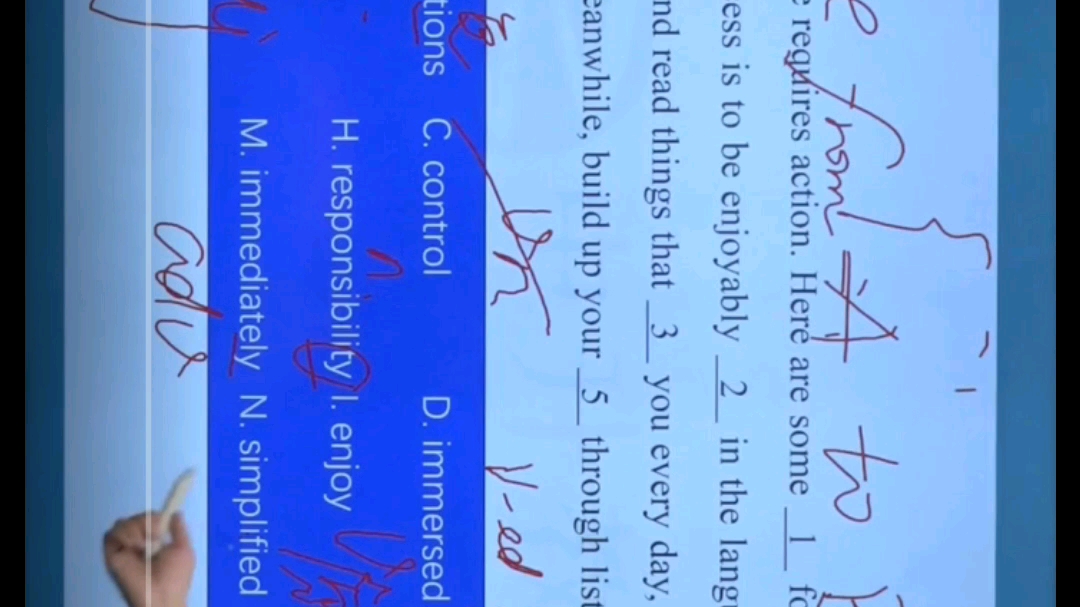 from A to
e requires action. Here are some 1 fo
ess is to be enjoyably 2 in the langu
nd read things that 3 you every day,
eanwhile, build up your 5 through list
v/n v-ed
tions C. control D. immersed
n
H. responsibility I. enjoy
M. immediately N. simplified
adv